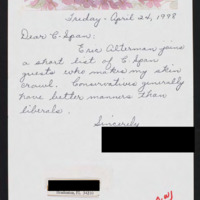 Friday - April 24, 1998
Dear C-Span:
Eric Alterman joins
a short list of C-Span
guests who makes my skin
crawl. Conservatives generally
have better manners than
liberals.
Sincerely